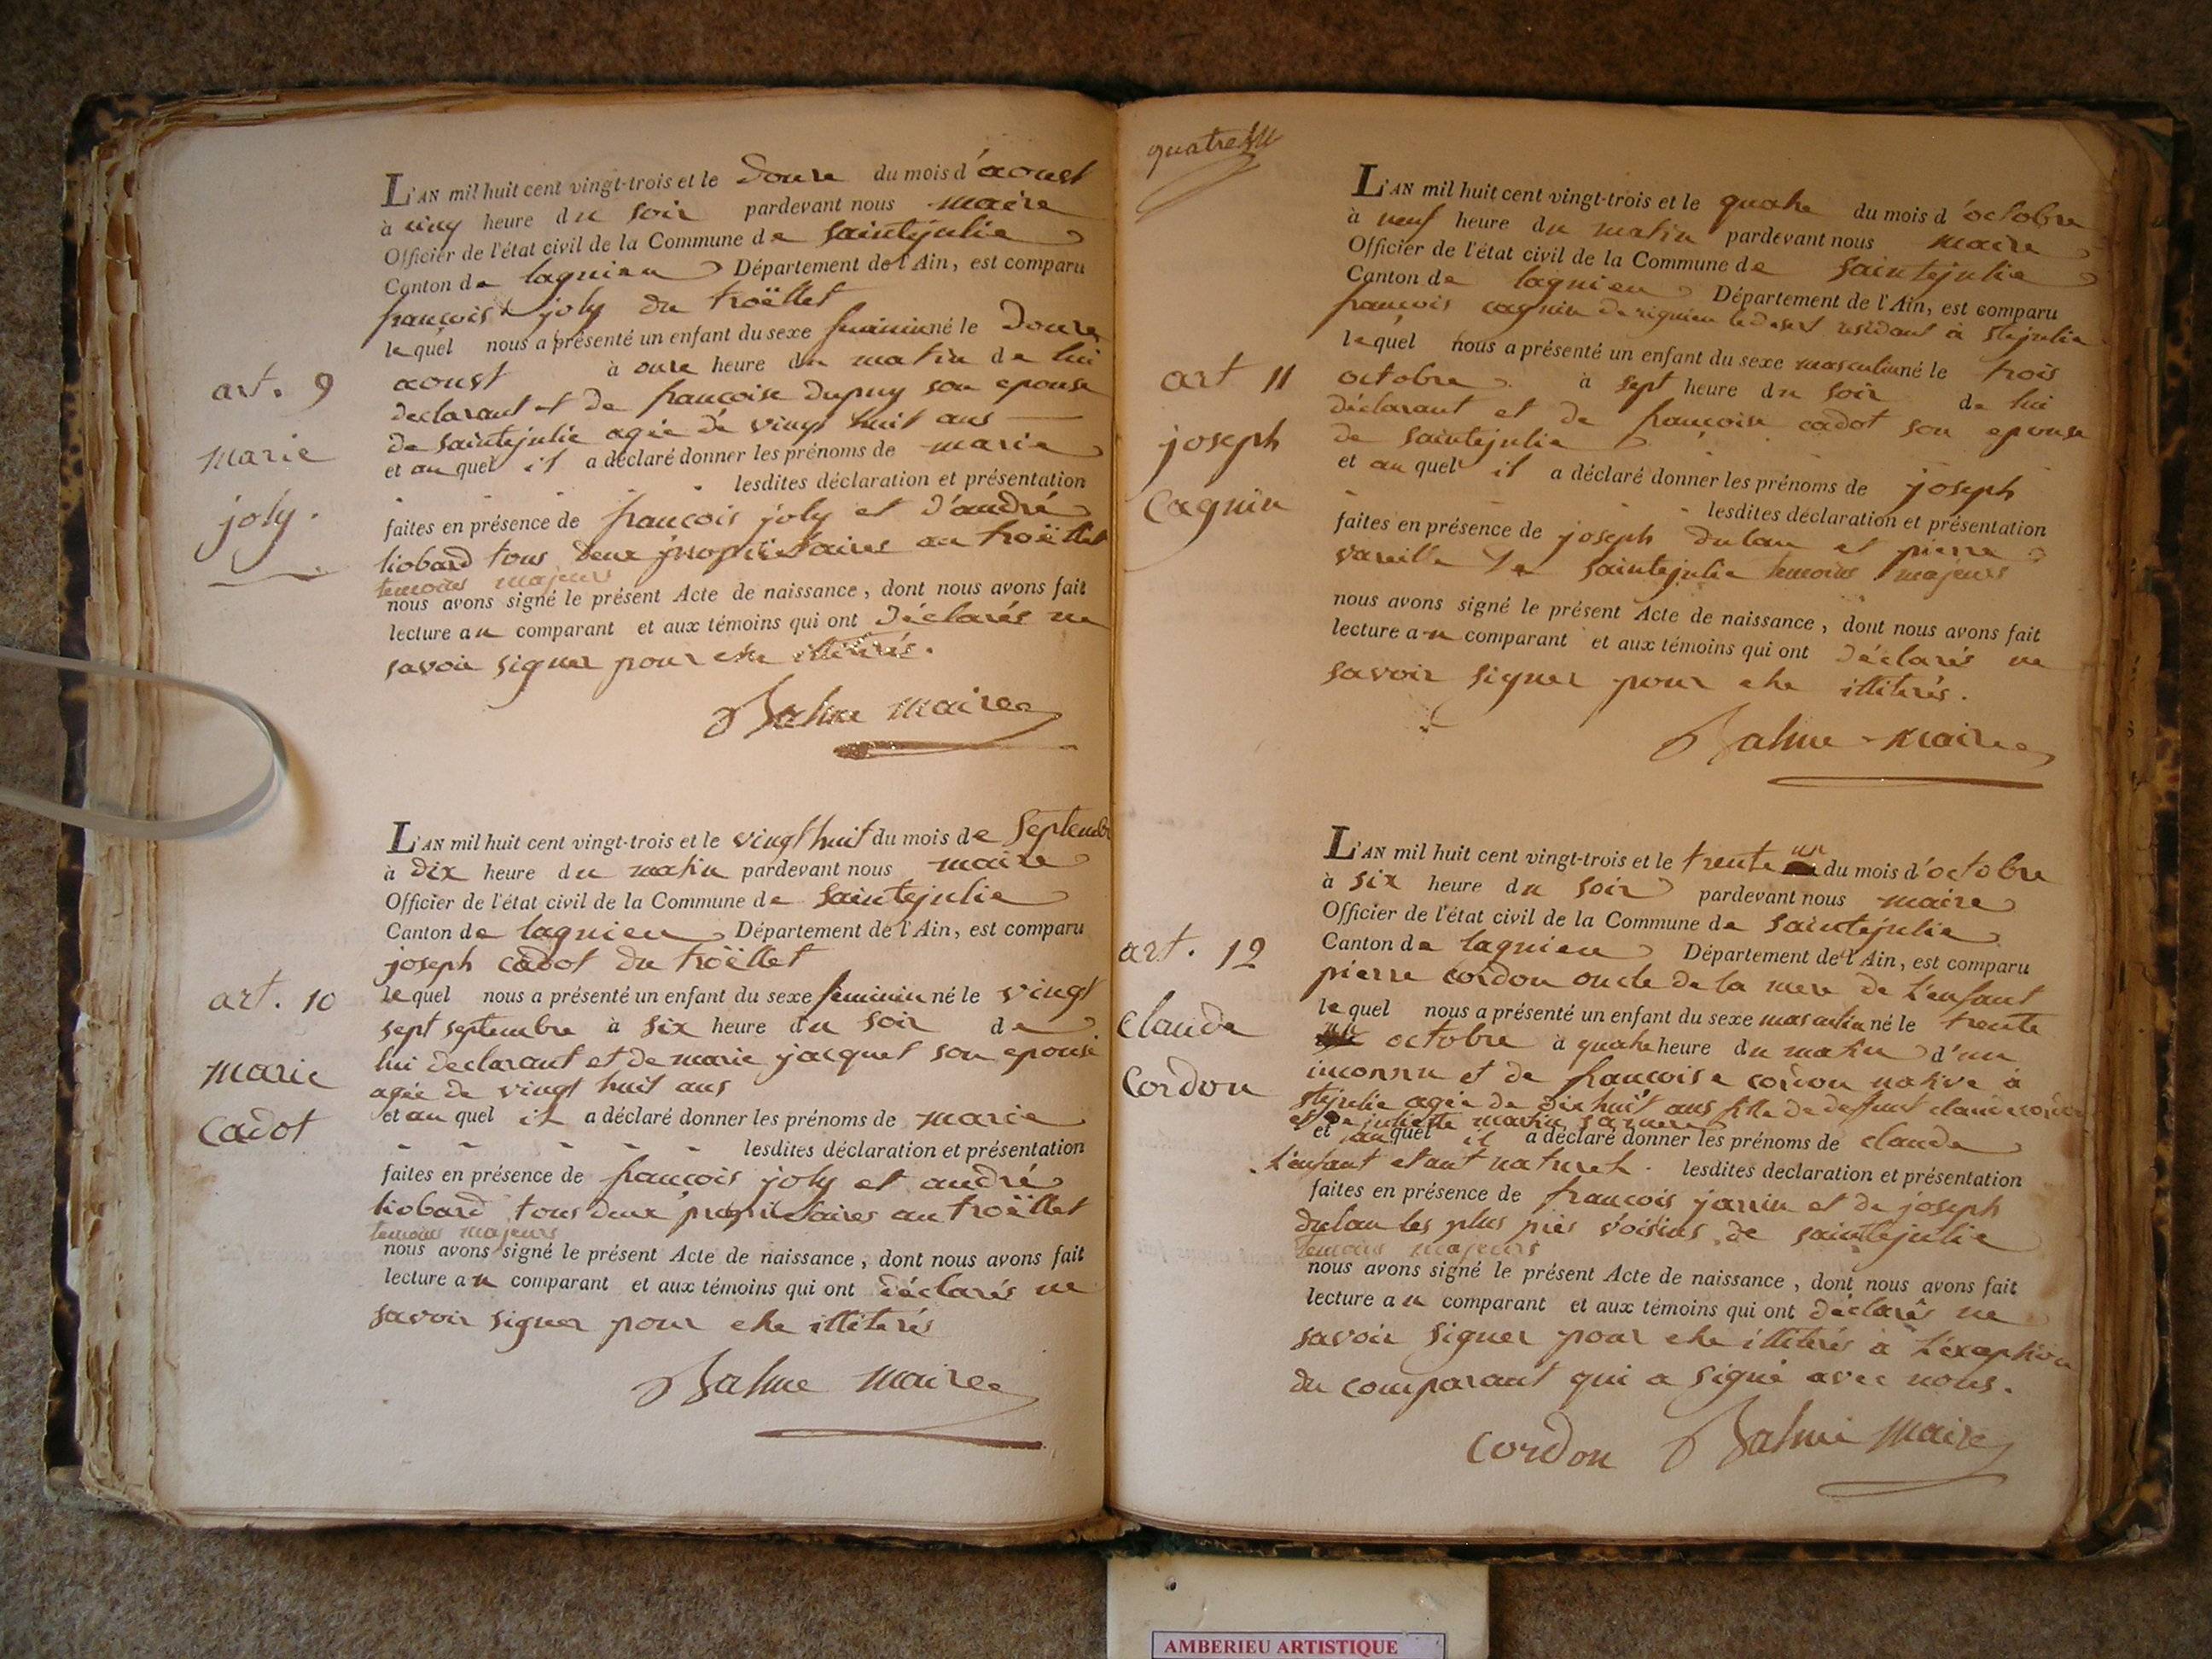 L'AN mil huit cent vingt-trois et le douze du mois d'aoust
à cinq heure du soir pardevant nous maire
Officier de l'état civil de la Commune de saintejulie
Canton de lagnieu Département de l'Ain, est comparu
francois joly du troëllet
lequel nous a présenté un enfant du sexe feminin né le douze
aoust à onze heure du matin de lui
declarant et de francoise dupuy son epouse
de saintejulie agée de vingt huit ans
et au quel il a déclaré donner les prénoms de marie
lesdites déclaration et présentation
faites en présence de francois joly et d'andré
liobard tous deux propriétaires au troëllet
temoins majeurs
nous avons signé le présent Acte de naissance, dont nous avons fait
lecture au comparant et aux témoins qui ont déclarés ne
savoir signer pour etre illiterés.
Balme maire
art. 9
marie
joly.
L'AN mil huit cent vingt-trois et le vingt huit du mois de Septembre
à dix heure du matin pardevant nous maire
Officier de l'état civil de la Commune de saintejulie
Canton de lagnieu Département de l'Ain, est comparu
joseph cadot du troëllet
lequel nous a présenté un enfant du sexe feminin né le vingt
sept septembre à six heure du soir de
lui declarant et de marie jacquet son epouse
agée de vingt huit ans
et au quel il a déclaré donner les prénoms de marie
- - - - - lesdites déclaration et présentation
faites en présence de francois joly et andré
liobard tous deux propriétaires au troëllet
temoins majeurs
nous avons signé le présent Acte de naissance, dont nous avons fait
lecture au comparant et aux témoins qui ont déclarés ne
savoir signer pour etre illiterés
Balme maire
art. 10
marie
Cadot
L'AN mil huit cent vingt-trois et le quatre du mois d'octobre
à neuf heure du matin pardevant nous maire
Officier de l'état civil de la Commune de saintejulie
Canton de lagnieu Département de l'Ain, est comparu
francois cagnin de rignieu le desert residant à ste julie
lequel nous a présenté un enfant du sexe masculin né le trois
octobre à sept heure du soir de lui
déclarant et de françoise cadot son epouse
de saintejulie
et au quel il a déclaré donner les prénoms de joseph
lesdites déclaration et présentation
faites en présence de joseph dulau et pierre
vareille de saintejulie temoins majeurs
nous avons signé le présent Acte de naissance, dont nous avons fait
lecture au comparant et aux témoins qui ont déclarés ne
savoir signer pour etre illiterés.
Balme maire
art 11
joseph
Cagnin
L'AN mil huit cent vingt-trois et le trente un du mois d'octobre
à six heure du soir pardevant nous maire
Officier de l'état civil de la Commune de saintejulie
Canton de lagnieu Département de l'Ain, est comparu
pierre cordon oncle de la mere de l'enfant
lequel nous a présenté un enfant du sexe masculin né le trente
un octobre à quatre heure du matin d'un
inconnu et de francoise cordon native à
ste julie agée de dix huit ans fille de deffunt claude cordon
et de juliette martin sa mere
et au quel il a déclaré donner les prénoms de claude
l'enfant etant naturel. lesdites déclaration et présentation
faites en présence de francois janin et de joseph
dulau les plus près voisins de saintejulie
temoins majeurs
nous avons signé le présent Acte de naissance, dont nous avons fait
lecture au comparant et aux témoins qui ont déclarés ne
savoir signer pour etre illiterés à l'exception
du comparant qui a signé avec nous.
Cordon Balme maire
art. 12
claude
Cordon
AMBERIEU ARTISTIQUE